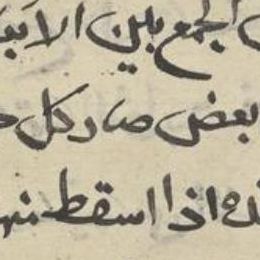 الجمع بين الا
بعض صار كل
اذا اسقط